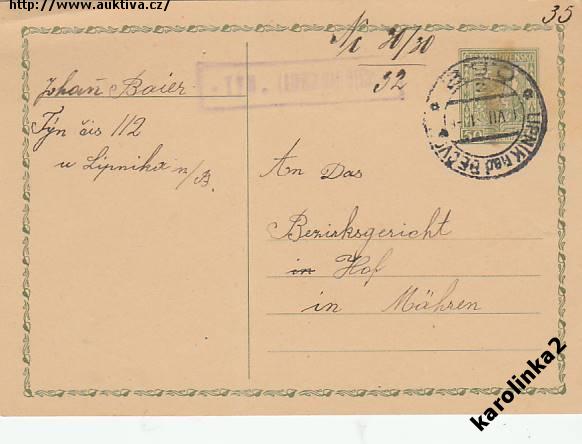 http://www.auktiva.cz/
35
Nc 70/30
32
Johañ Baier
Týn čis 112
u Lipnika n/B.
LIPNÍK nad BEČVOU
50
An Das
Bezirksgericht
in Hof
in Mähren
karolinka2